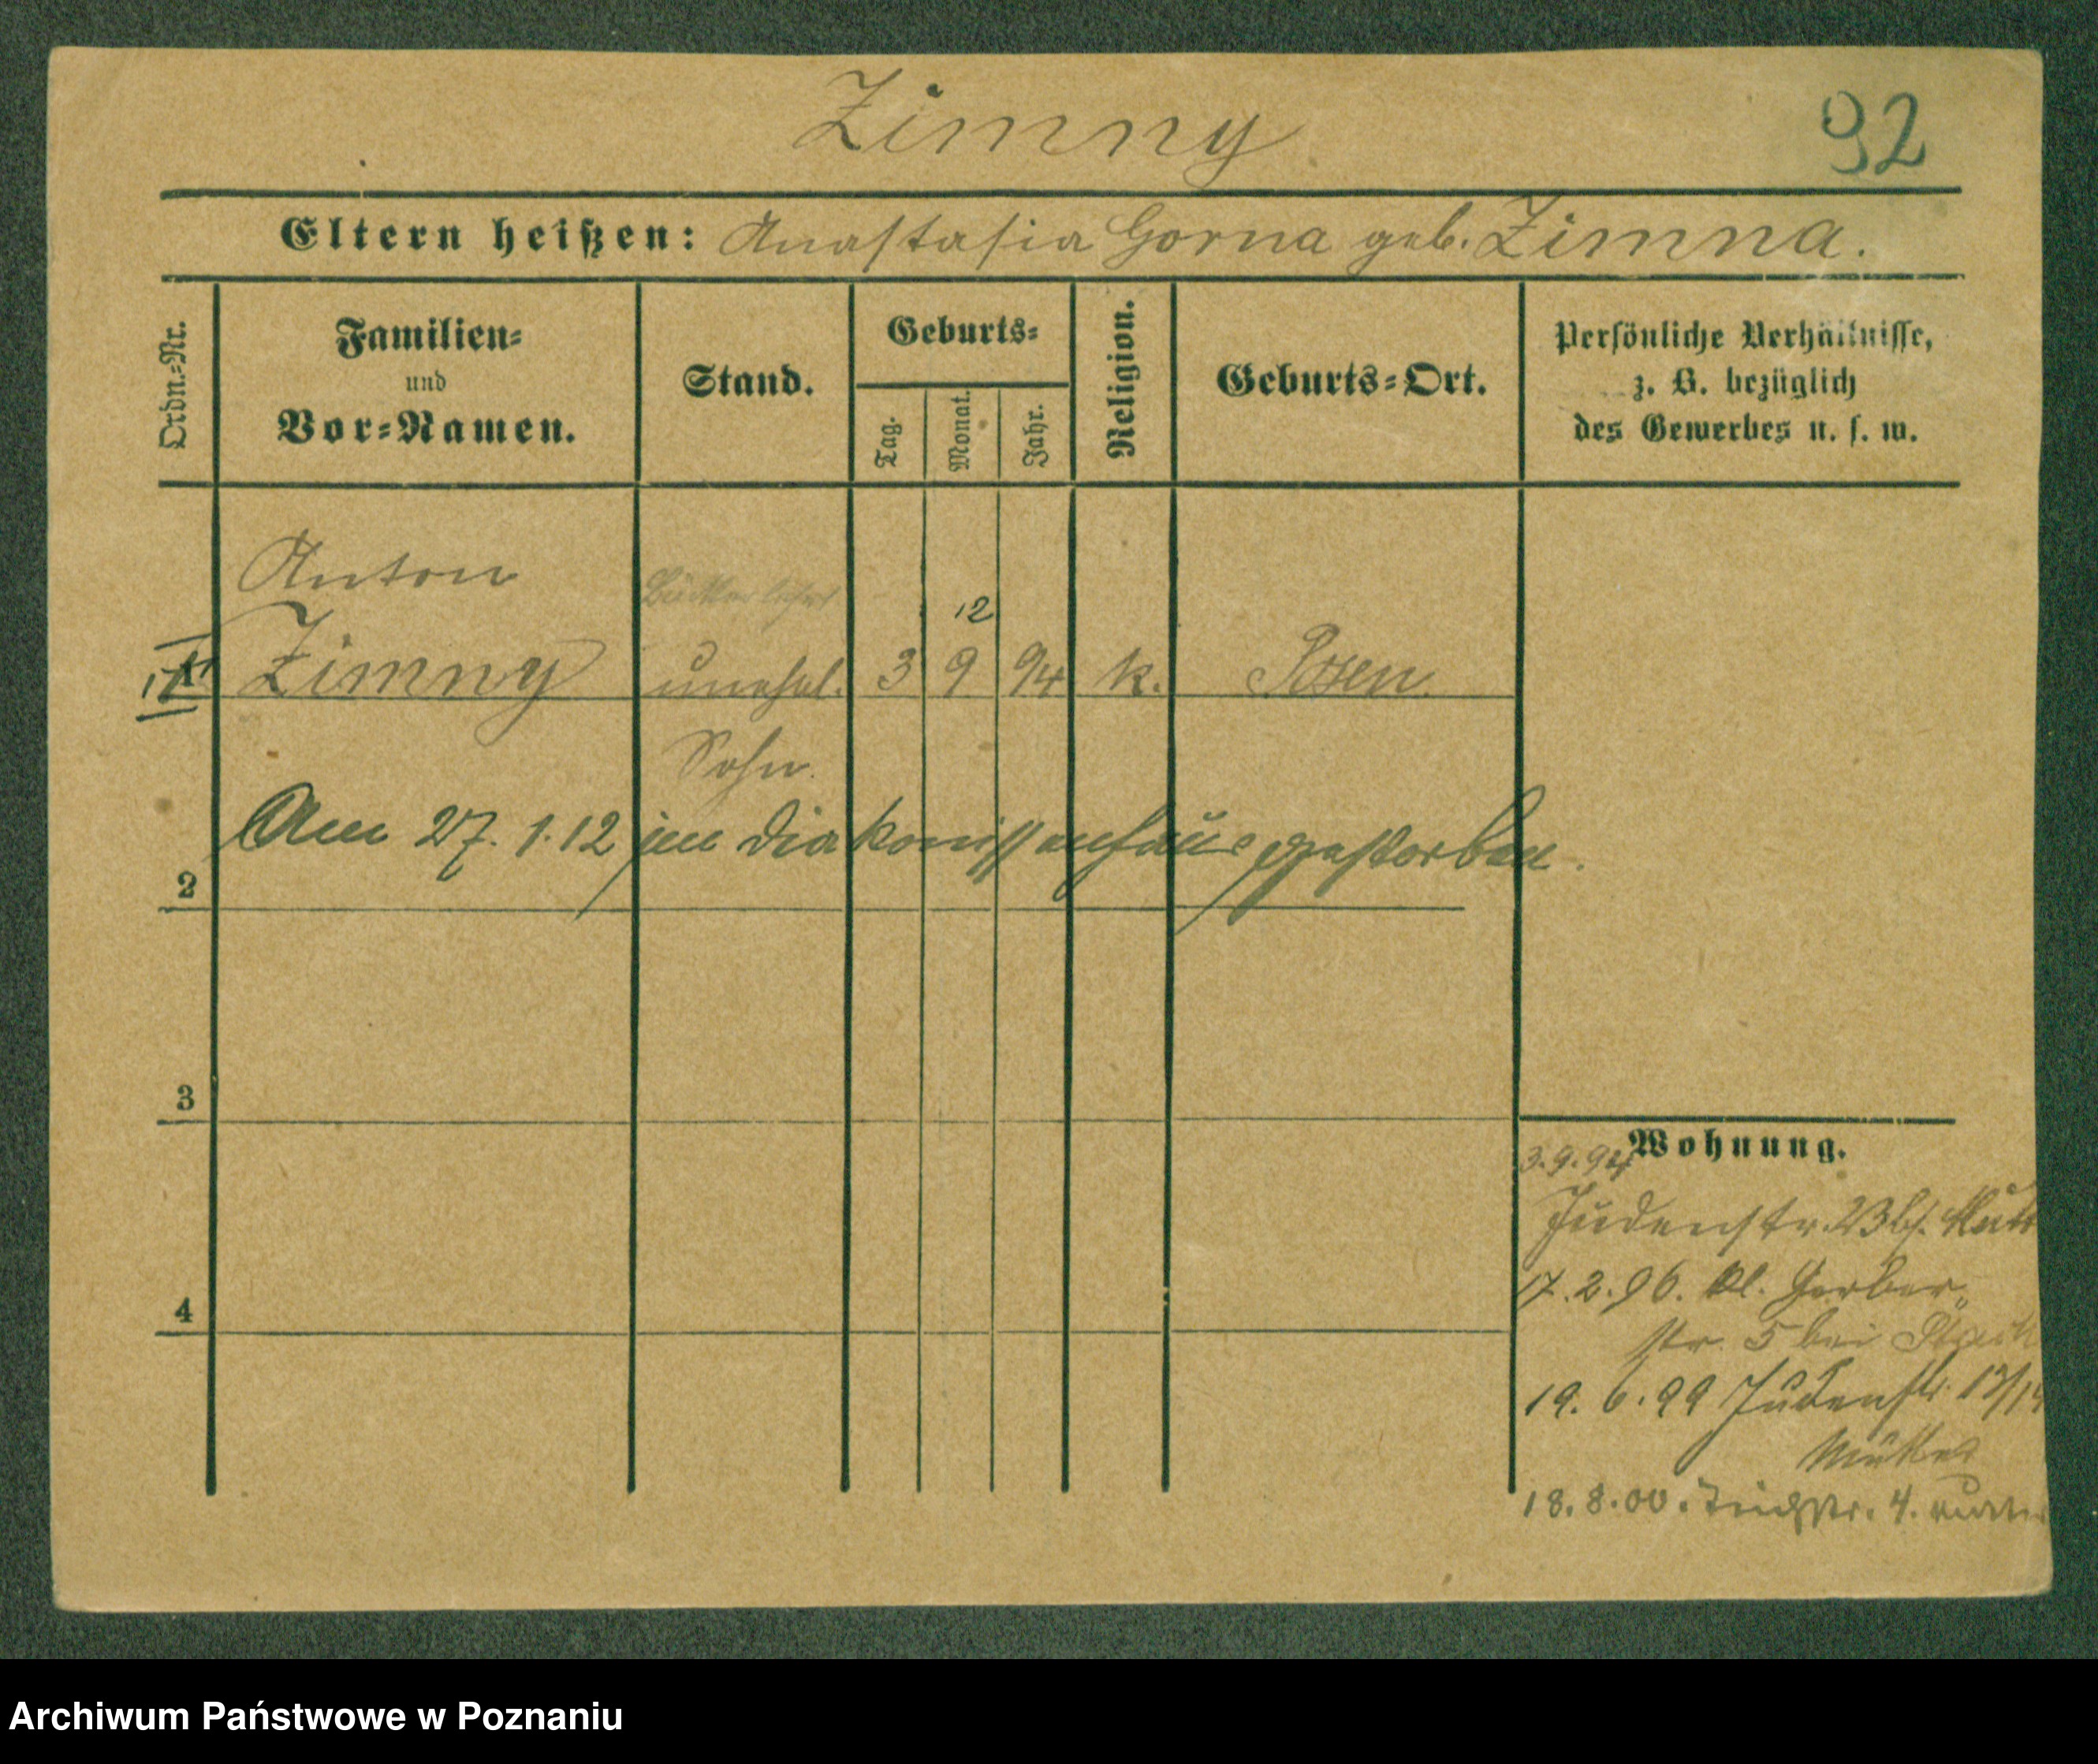 Zimny
92
Eltern heißen: Anastasia Gorna geb. Zimna.
Ordn.-Nr.
Familien-
und
Vor-Namen.
Stand.
Geburts-
Tag.
Monat.
Jahr.
Religion.
Geburts-Ort.
Persönliche Verhältnisse,
z. B. bezüglich
des Gewerbes u. s. w.
Anton
12
Zimny unehel. 3 9 94 k. Posen.
Sohn.
Am 27. 1. 12 im Diakonissenhause gestorben.
2
3
4
Wohnung.
3.9.94
Judenstr. 23 bs.
17.2.96. kl. Gerber
str. 5 bei
19.6.99 Judenstr. 13/14
Mutter
18.8.00. Teichstr. 4.
Archiwum Państwowe w Poznaniu